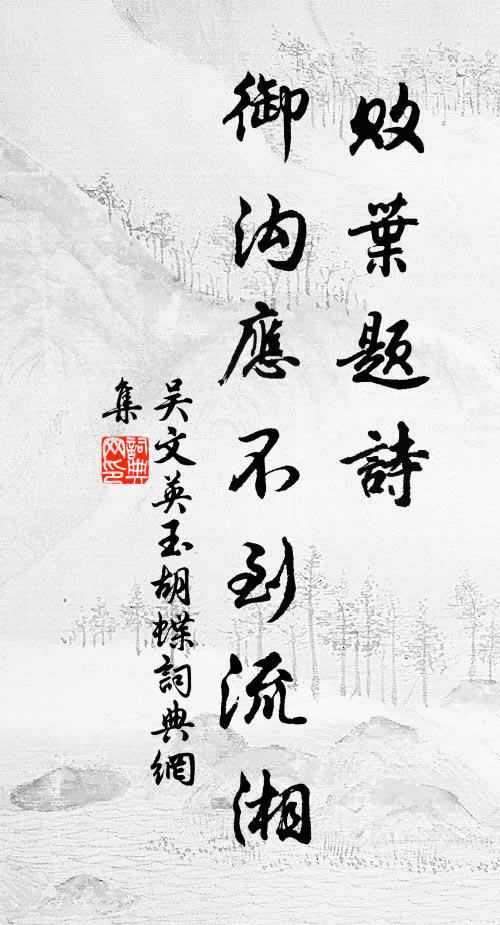 败葉题詩
御沟應不到流湘
吴文英玉胡蝶詞典網
集
詞典网印